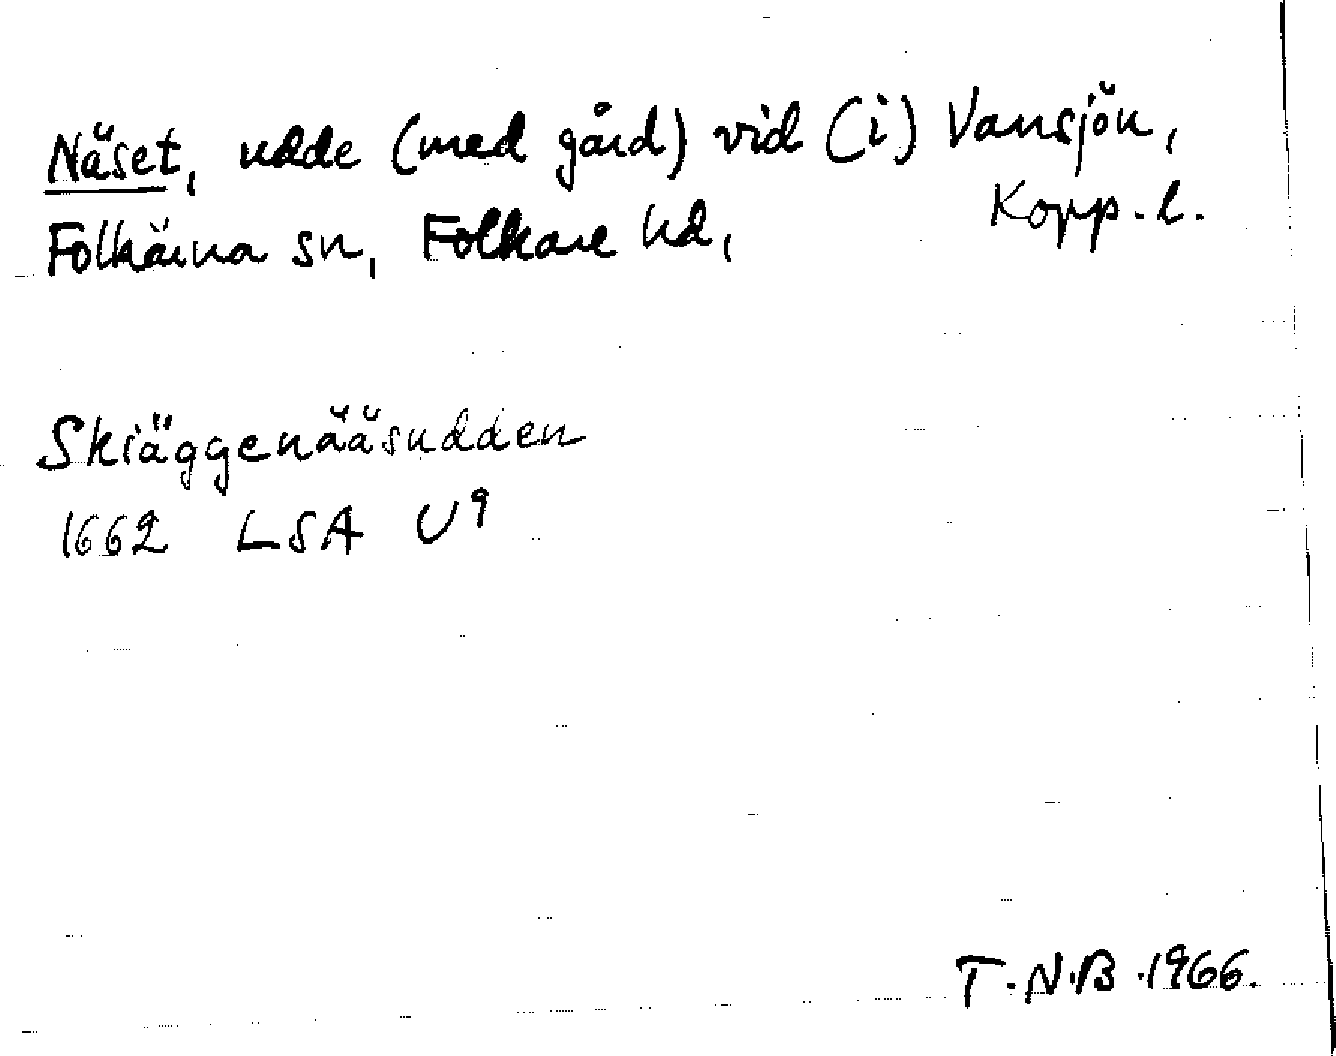 Näset, udde (med gård) vid (i) Vansjön,
Folkärna sn, Folkare hd, Kopp. l.
Skiäggenääsudden
1662 LSA U9
T.N.B. 1966.